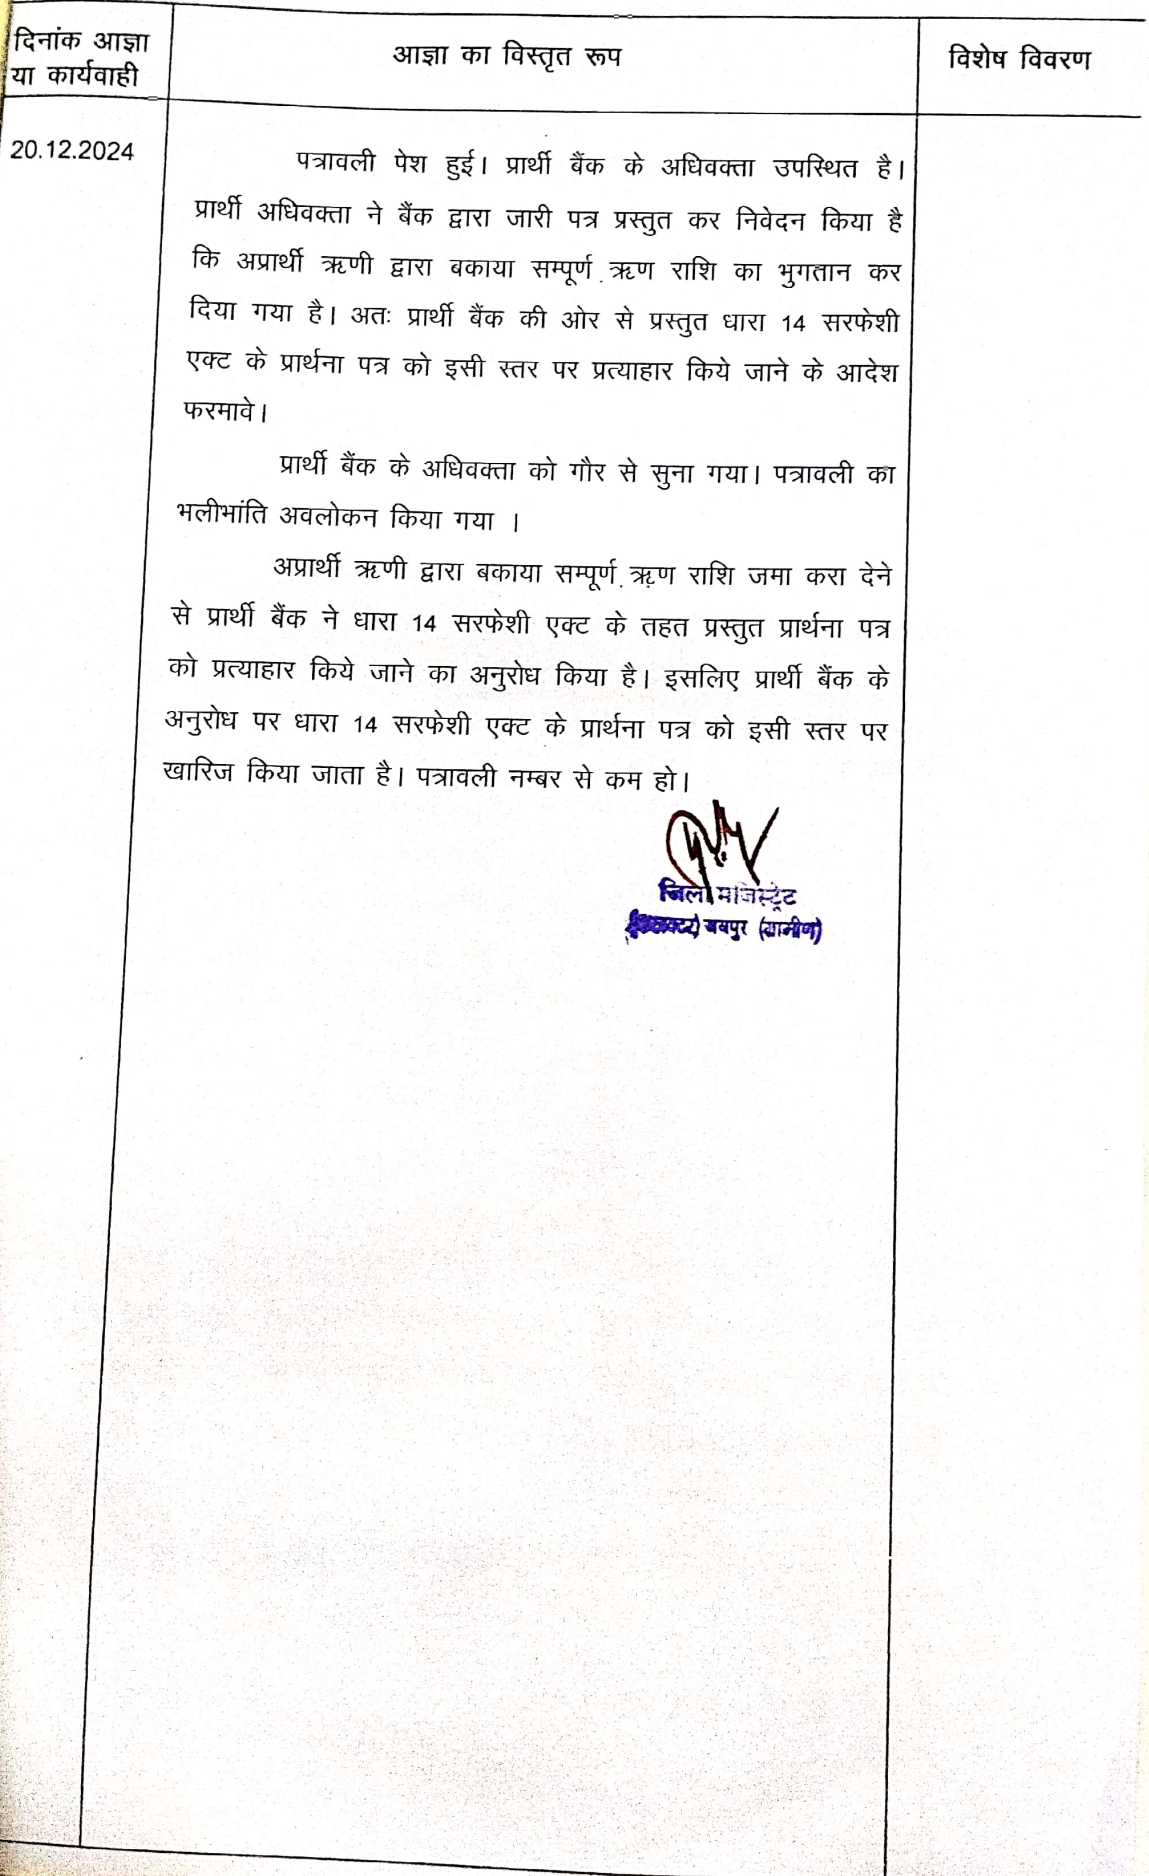 दिनांक आज्ञा
या कार्यवाही
आज्ञा का विस्तृत रूप
विशेष विवरण
20.12.2024
पत्रावली पेश हुई। प्रार्थी बैंक के अधिवक्ता उपस्थित है।
प्रार्थी अधिवक्ता ने बैंक द्वारा जारी पत्र प्रस्तुत कर निवेदन किया है
कि अप्रार्थी ऋणी द्वारा बकाया सम्पूर्ण ऋण राशि का भुगतान कर
दिया गया है। अतः प्रार्थी बैंक की ओर से प्रस्तुत धारा 14 सरफेशी
एक्ट के प्रार्थना पत्र को इसी स्तर पर प्रत्याहार किये जाने के आदेश
फरमावे।
प्रार्थी बैंक के अधिवक्ता को गौर से सुना गया। पत्रावली का
भलीभांति अवलोकन किया गया ।
अप्रार्थी ऋणी द्वारा बकाया सम्पूर्ण ऋण राशि जमा करा देने
से प्रार्थी बैंक ने धारा 14 सरफेशी एक्ट के तहत प्रस्तुत प्रार्थना पत्र
को प्रत्याहार किये जाने का अनुरोध किया है। इसलिए प्रार्थी बैंक के
अनुरोध पर धारा 14 सरफेशी एक्ट के प्रार्थना पत्र को इसी स्तर पर
खारिज किया जाता है। पत्रावली नम्बर से कम हो।
जिला मजिस्ट्रेट
जयपुर (ग्रामीण)